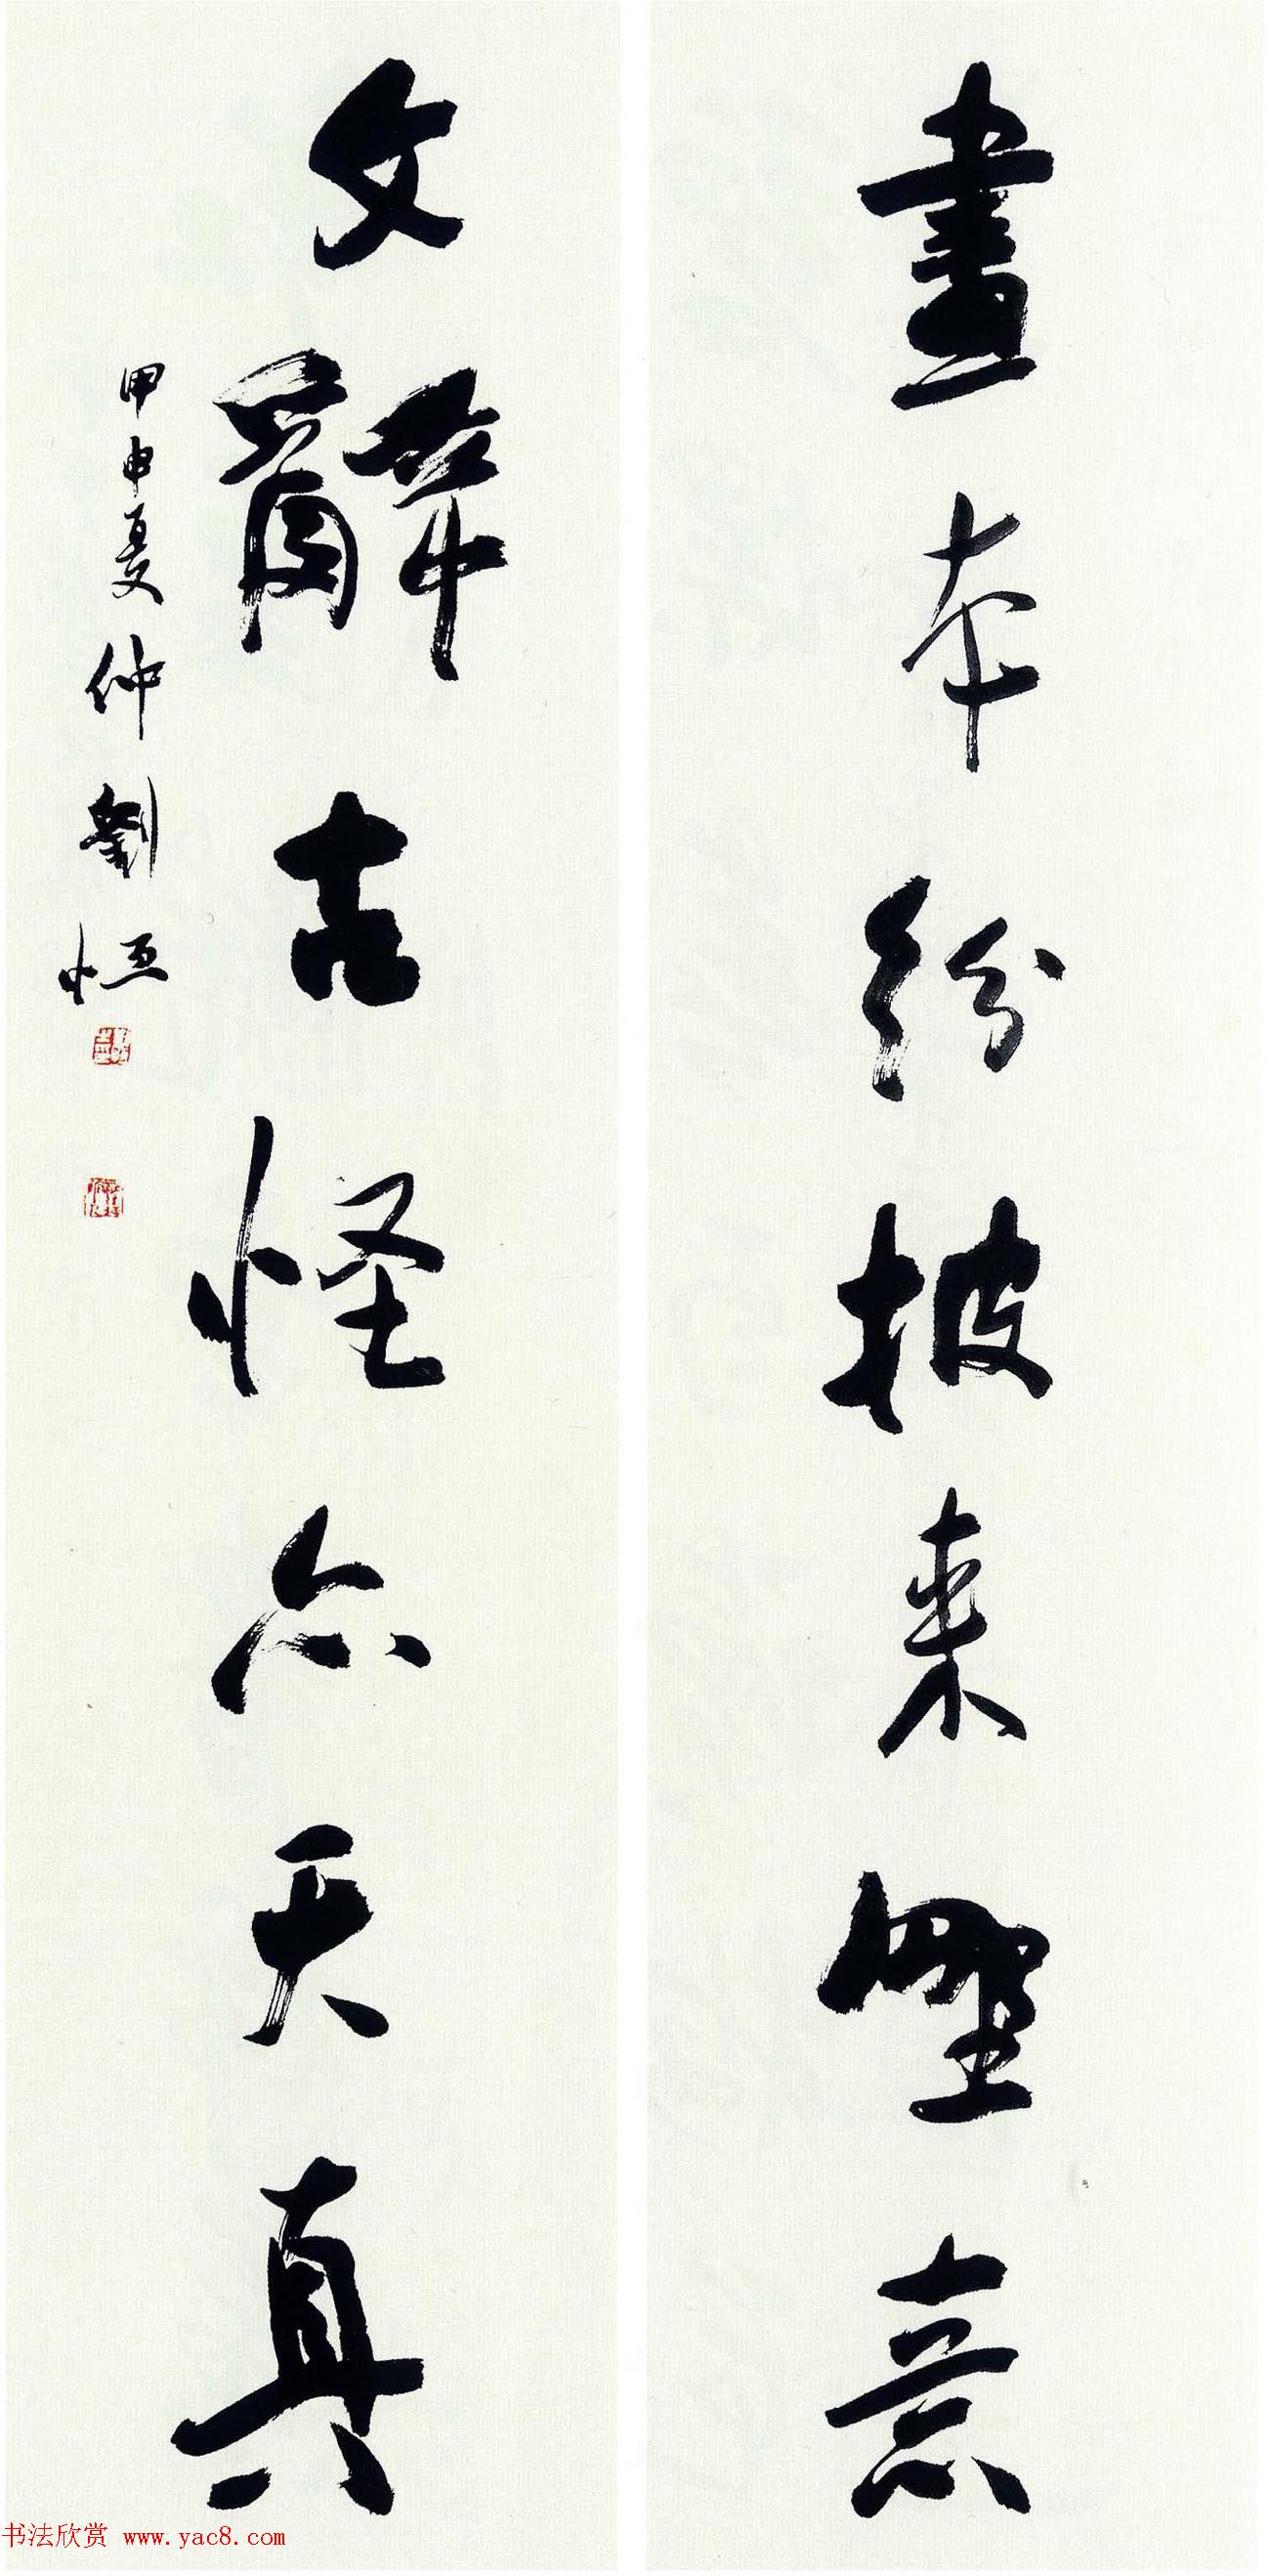 畫本紛披來野意
文辭古怪亦天真
甲申夏仲劉恆
书法欣赏 www.yac8.com